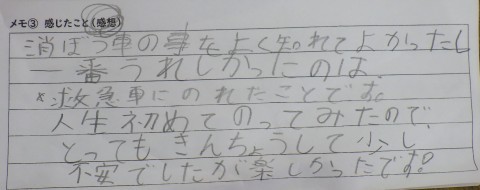 メモ③ 感じたこと(感想)
消ぼう車の事をよく知れてよかったし
一番うれしかったのは、
*救急車にのれたことです。
人生初めてのってみたので、
とってもきんちょうして少し、
不安でしたが楽しかったです!